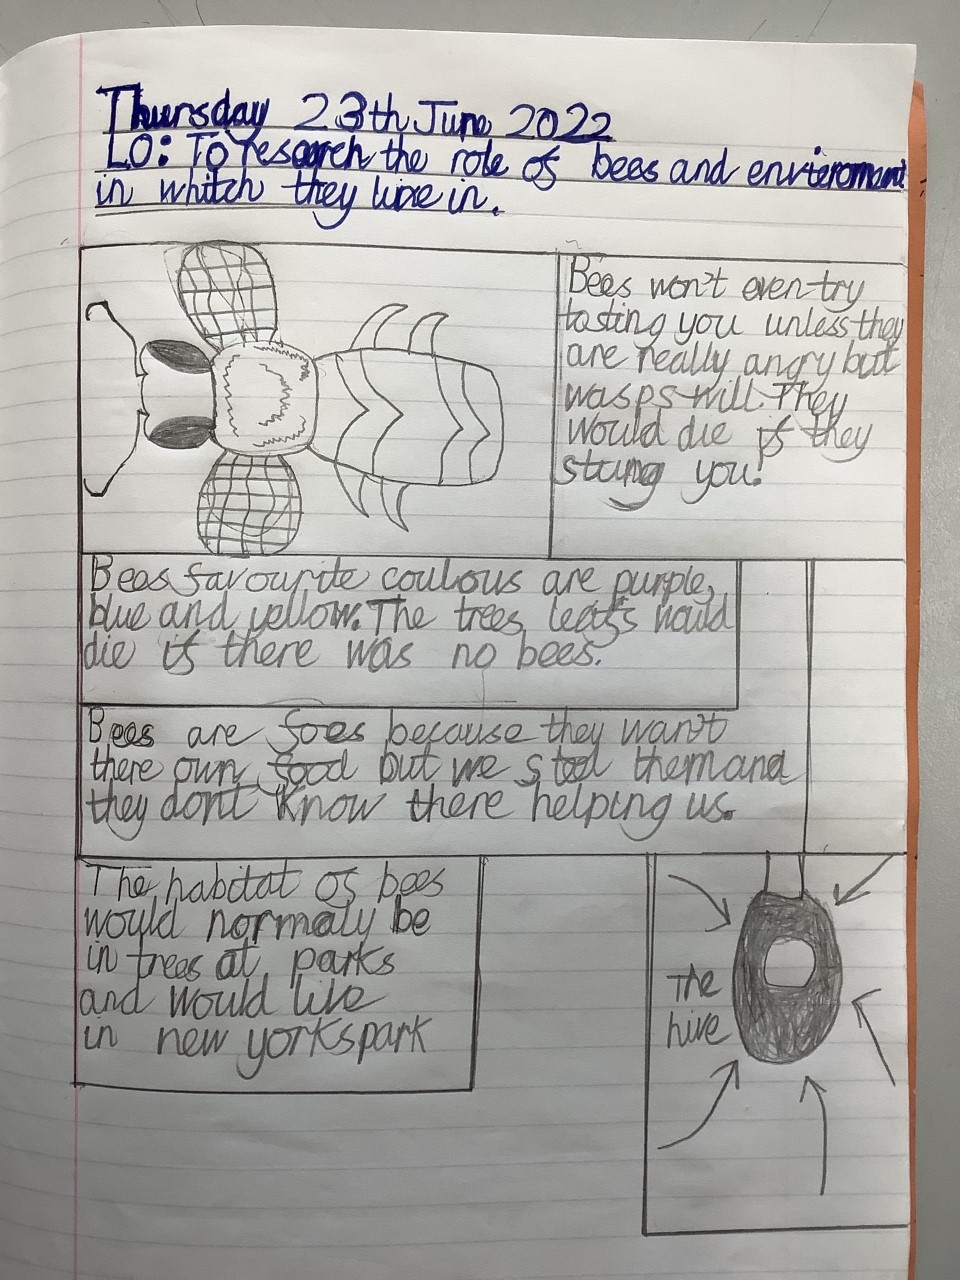 Thursday 23th June 2022
LO: To research the role of bees and envieroment
in whitch they live in.
Bees won't even try
tasting you unless they
are really angry but
wasps will. They
would die if they
stung you!
Bees favourite coulous are purple,
blue and yellow. The trees leafs would
die if there was no bees.
Bees are foes because they wan't
there own food but we steel them and
they dont know there helping us.
The habitat of bees
would normaly be
in trees at parks
and would live
in new yorks park
The
hive